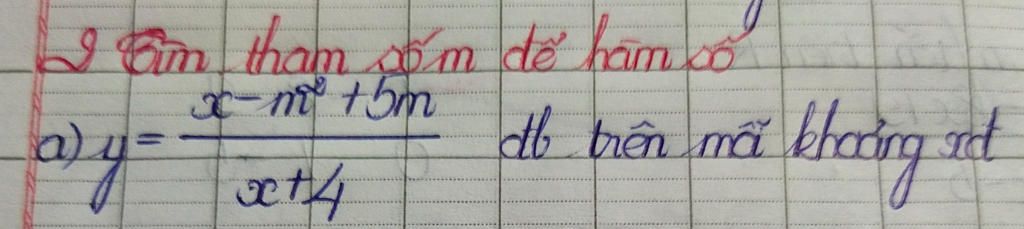 2 Tìm tham số m để hàm số
a) y = \frac{x - m² + 5m}{x + 4} đb trên mỗi khoảng xđ